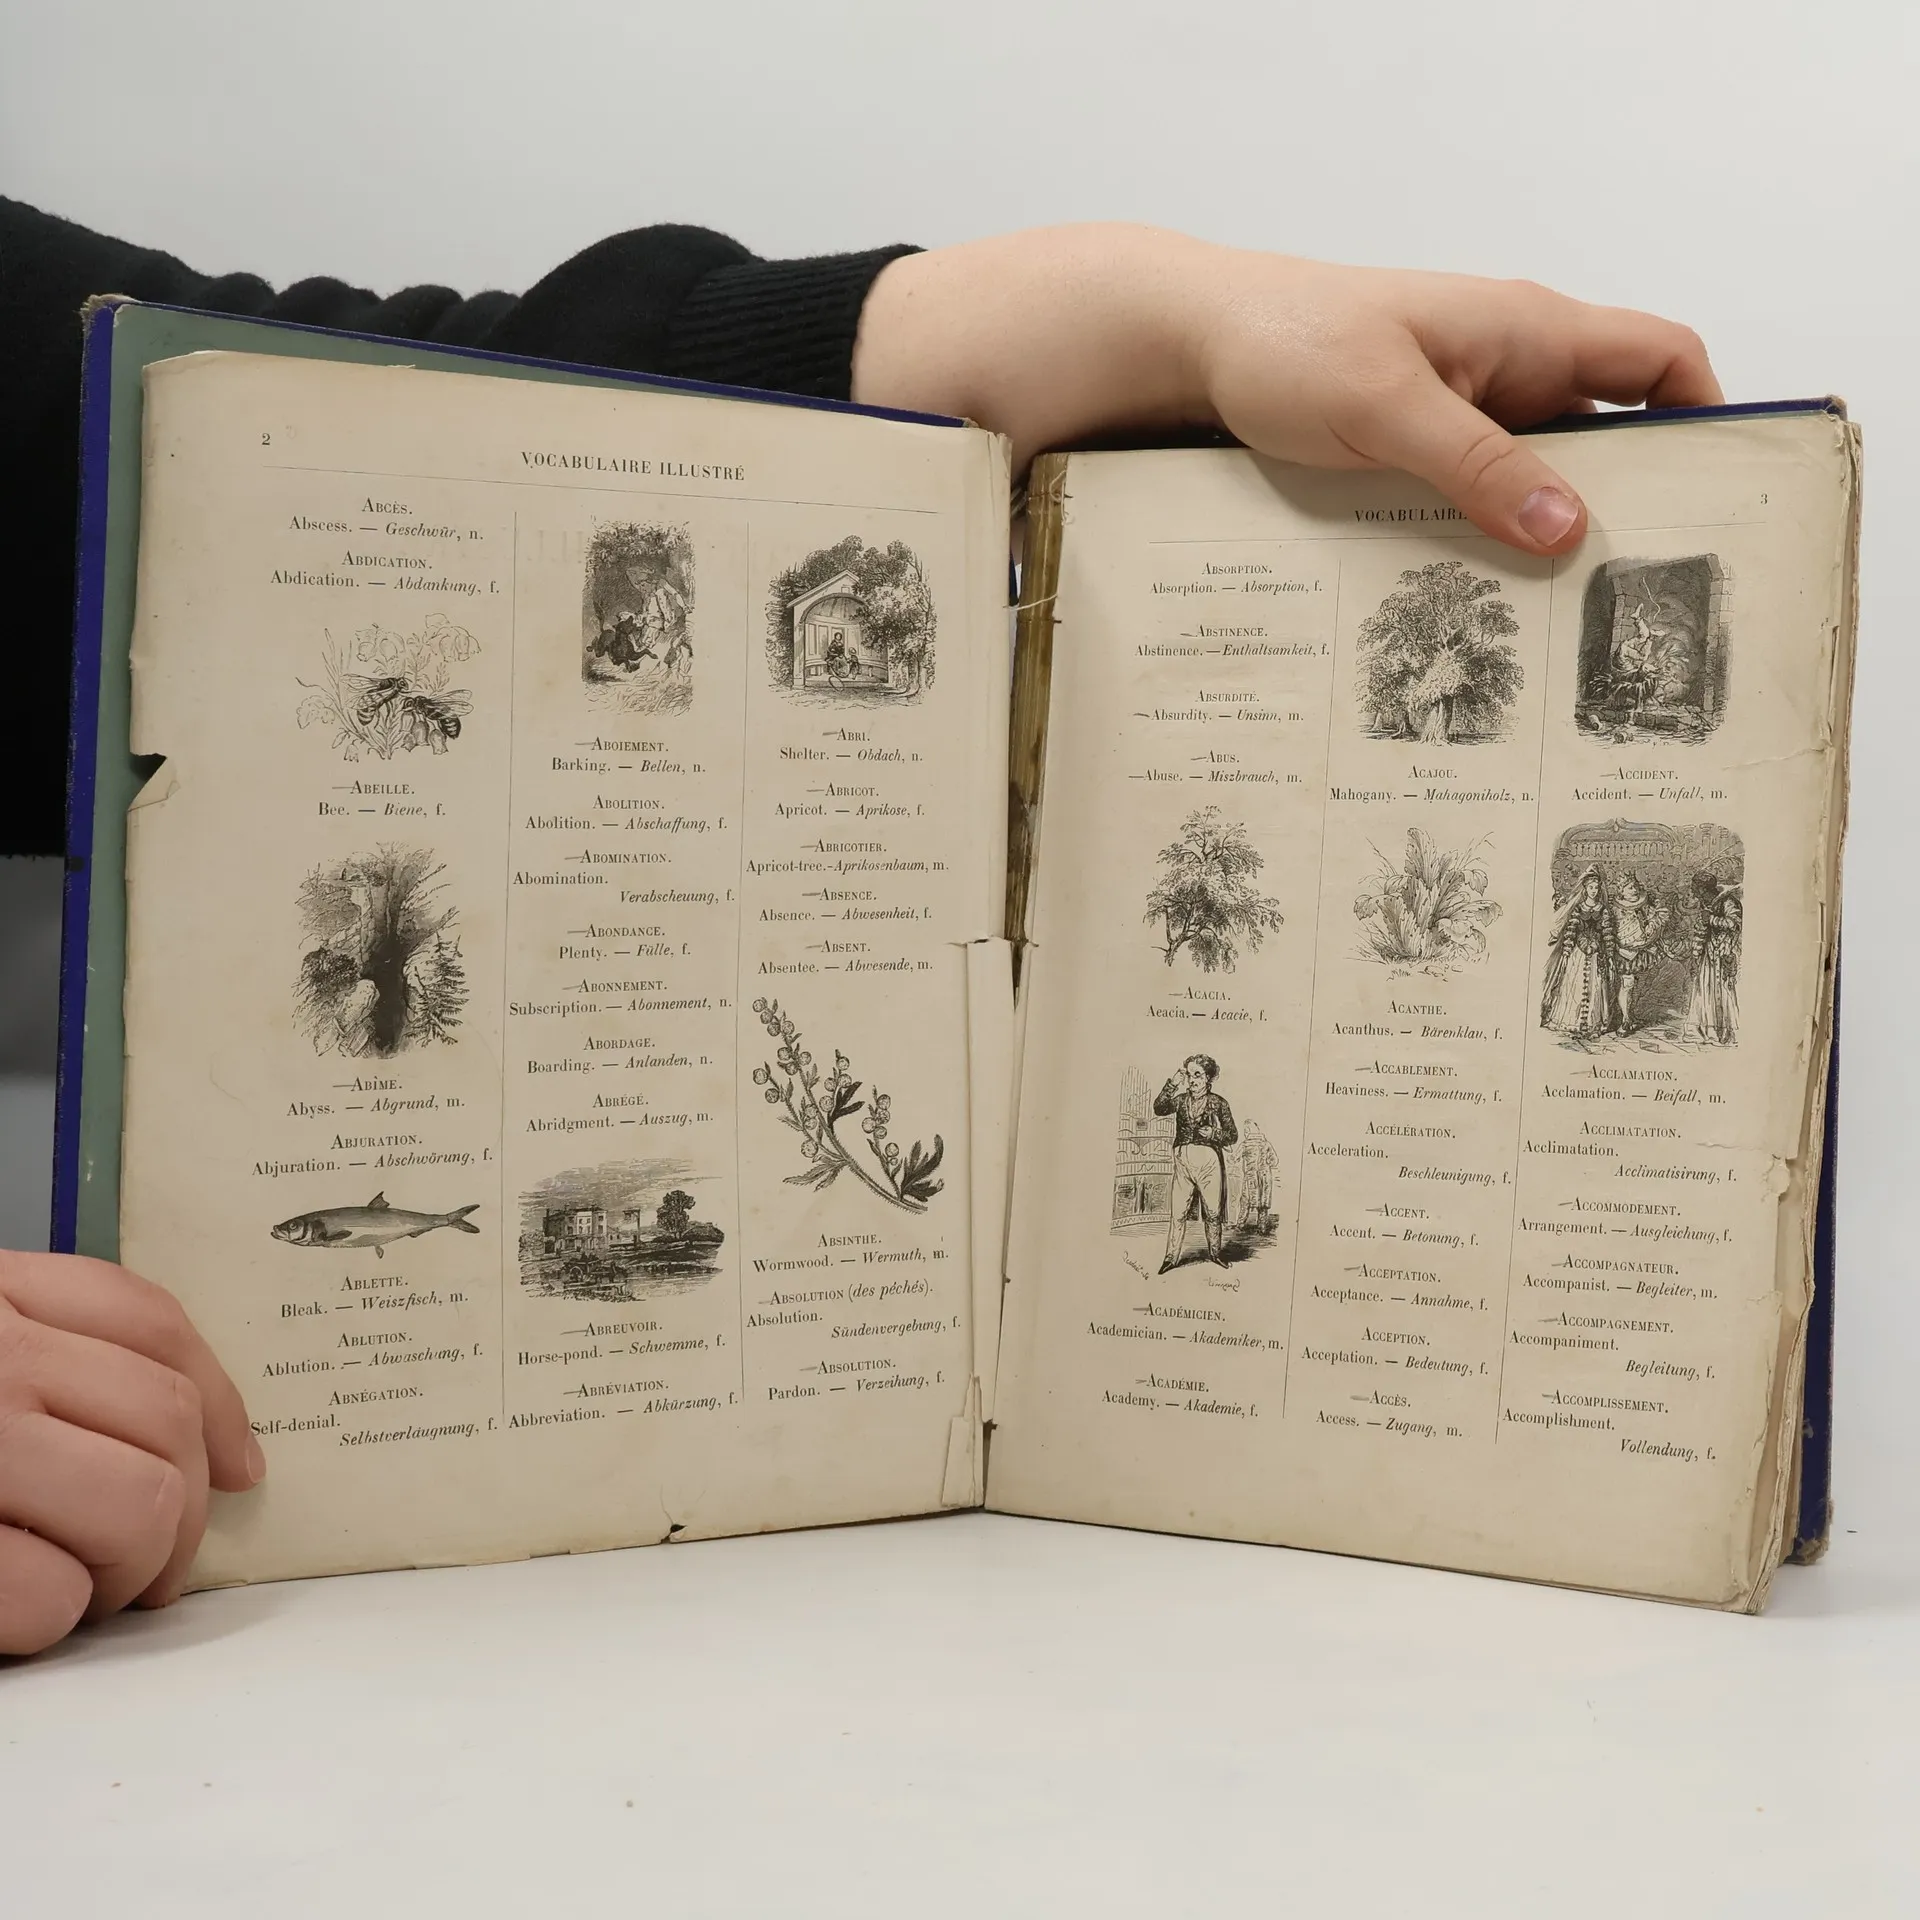 2
VOCABULAIRE ILLUSTRÉ
ABCÈS.
Abscess. — Geschwür, n.
ABDICATION.
Abdication. — Abdankung, f.
ABEILLE.
Bee. — Biene, f.
ABÎME.
Abyss. — Abgrund, m.
ABJURATION.
Abjuration. — Abschwörung, f.
ABLETTE.
Bleak. — Weiszfisch, m.
ABLUTION.
Ablution. — Abwaschung, f.
ABNÉGATION.
Self-denial.
Selbstverläugnung, f.
ABOIEMENT.
Barking. — Bellen, n.
ABOLITION.
Abolition. — Abschaffung, f.
ABOMINATION.
Abomination.
Verabscheuung, f.
ABONDANCE.
Plenty. — Fülle, f.
ABONNEMENT.
Subscription. — Abonnement, n.
ABORDAGE.
Boarding. — Anlanden, n.
ABRÉGÉ.
Abridgment. — Auszug, m.
ABREUVOIR.
Horse-pond. — Schwemme, f.
ABRÉVIATION.
Abbreviation. — Abkürzung, f.
ABRI.
Shelter. — Obdach, n.
ABRICOT.
Apricot. — Aprikose, f.
ABRICOTIER.
Apricot-tree.-Aprikosenbaum, m.
ABSENCE.
Absence. — Abwesenheit, f.
ABSENT.
Absentee. — Abwesende, m.
ABSINTHE.
Wormwood. — Wermuth, m.
ABSOLUTION (des péchés).
Absolution.
Sündenvergebung, f.
ABSOLUTION.
Pardon. — Verzeihung, f.
3
VOCABULAIRE
ABSORPTION.
Absorption. — Absorption, f.
ABSTINENCE.
Abstinence. — Enthaltsamkeit, f.
ABSURDITÉ.
Absurdity. — Unsinn, m.
ABUS.
Abuse. — Miszbrauch, m.
ACACIA.
Acacia. — Acacie, f.
ACADÉMICIEN.
Academician. — Akademiker, m.
ACADÉMIE.
Academy. — Akademie, f.
ACAJOU.
Mahogany. — Mahagoniholz, n.
ACANTHE.
Acanthus. — Bärenklau, f.
ACCABLEMENT.
Heaviness. — Ermattung, f.
ACCÉLÉRATION.
Acceleration.
Beschleunigung, f.
ACCENT.
Accent. — Betonung, f.
ACCEPTATION.
Acceptance. — Annahme, f.
ACCEPTION.
Acceptation. — Bedeutung, f.
ACCÈS.
Access. — Zugang, m.
ACCIDENT.
Accident. — Unfall, m.
ACCLAMATION.
Acclamation. — Beifall, m.
ACCLIMATATION.
Acclimatation.
Acclimatisirung, f.
ACCOMMODEMENT.
Arrangement. — Ausgleichung, f.
ACCOMPAGNATEUR.
Accompanist. — Begleiter, m.
ACCOMPAGNEMENT.
Accompaniment.
Begleitung, f.
ACCOMPLISSEMENT.
Accomplishment.
Vollendung, f.